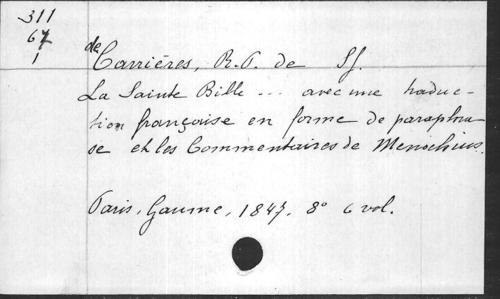 311
67
1
de Carrières, R. P. de Sf.
La Sainte Bible ... avec une traduc-
tion françoise en forme de paraphra-
se et les Commentaires de Menochius.
Paris, Gaume, 1847, 8° 6 vol.